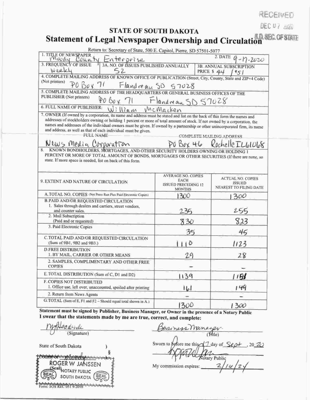 RECEIVED
DEC 07
S.D. SEC OF STATE
STATE OF SOUTH DAKOTA
Statement of Legal Newspaper Ownership and Circulation
Return to: Secretary of State, 500 E. Capitol, Pierre, SD 57501-5077
1. TITLE OF NEWSPAPER
Moody County Enterprise
2. DATE 9-17-2020
3. FREQUENCY OF ISSUE
weekly
3A. NO. OF ISSUES PUBLISHED ANNUALLY
52
3B. ANNUAL SUBSCRIPTION
PRICE $
4. COMPLETE MAILING ADDRESS OF KNOWN OFFICE OF PUBLICATION (Street, City, County, State and ZIP+4 Code)
(Not printers)
PO Box 71 Flandreau SD 57028
5. COMPLETE MAILING ADDRESS OF THE HEADQUARTERS OR GENERAL BUSINESS OFFICES OF THE
PUBLISHER (Not printers)
PO Box 71 Flandreau SD 57028
6. FULL NAME OF PUBLISHER
William McMacken
7. OWNER (If owned by a corporation, its name and address must be stated and list on the back of this form the names and
addresses of stockholders owning or holding 1 percent or more of total amount of stock. If not owned by a corporation, the
names and addresses of the individual owners must be given. If owned by a partnership or other unincorporated firm, its name
and address, as well as that of each individual must be given.
FULL NAME
COMPLETE MAILING ADDRESS
News Media Corporation PO Box 46 Rochelle IL 61068
8. KNOWN BONDHOLDERS, MORTGAGES, AND OTHER SECURITY HOLDERS OWNING OR HOLDING 1
PERCENT OR MORE OF TOTAL AMOUNT OF BONDS, MORTGAGES OR OTHER SECURITIES (If there are none, so
state. If more space is needed, list on back of this form.
9. EXTENT AND NATURE OF CIRCULATION
AVERAGE NO. COPIES
EACH
ISSUES PRECEDING 12
MONTHS
ACTUAL NO. COPIES
ISSUED
NEAREST TO FILING DATE
A. TOTAL NO. COPIES
1300
1300
B. PAID AND/OR REQUESTED CIRCULATION
1. Sales through dealers and carriers, street vendors,
and counter sales.
235
255
2. Mail Subscription
(Paid and or requested)
830
823
3. Paid Electronic Copies
35
45
C. TOTAL PAID AND/OR REQUESTED CIRCULATION
(Sum of 9B1, 9B2 and 9B3.)
1110
1123
D. FREE DISTRIBUTION
1. BY MAIL, CARRIER OR OTHER MEANS
29
28
2. SAMPLES, COMPLIMENTARY AND OTHER FREE
COPIES
E. TOTAL DISTRIBUTION (Sum of C, D1 and D2)
1139
1151
F. COPIES NOT DISTRIBUTED
1. Office use, left over, unaccounted, spoiled after printing
161
149
2. Return from News Agents
G. TOTAL (Sum of E, F1 and F2 - Should equal total shown in A.)
1300
1300
Statement must be signed by Publisher, Business Manager, or Owner in the presence of a Notary Public
I swear that the statements made by me are true, correct, and complete:
Business Manager
(Signature)
(Title)
State of South Dakota
Sworn to before me this 17 day of Sept, 2020
Notary Public
ROGER W JANSSEN
NOTARY PUBLIC
SOUTH DAKOTA
My commission expires: